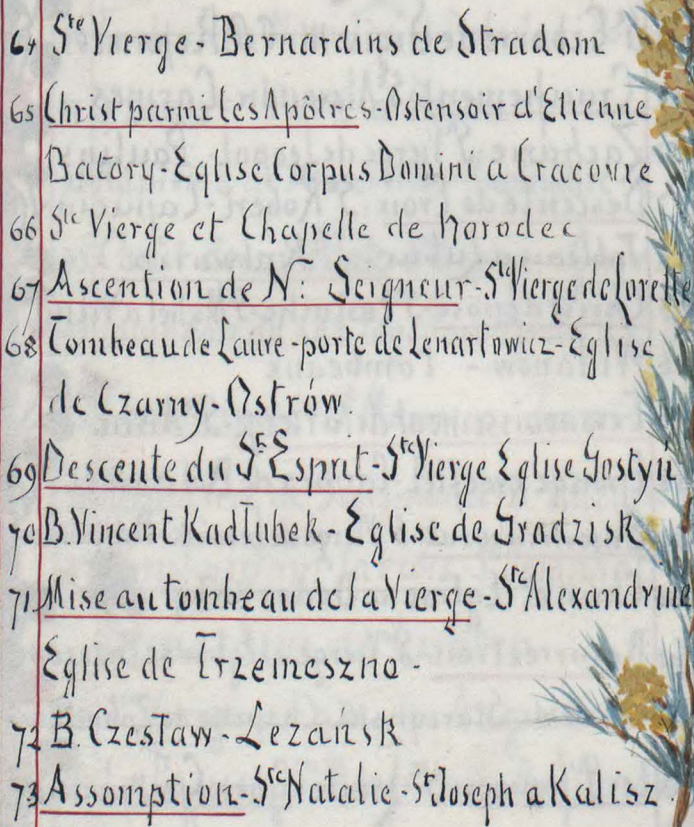 64 Ste Vierge - Bernardins de Stradom
65 Christ parmi les Apôtres - Ostensoir d'Etienne
Batory - Eglise Corpus Domini à Cracovie
66 Ste Vierge et Chapelle de Horodec
67 Ascention de N: Seigneur - Ste Vierge de Lorette
68 Tombeau de Laure - porte de Lenartowicz - Eglise
de Czarny - Ostrów.
69 Descente du St Esprit - Ste Vierge Eglise Gostyń
70 B. Vincent Kadłubek - Eglise de Grodzisk
71 Mise au tombeau de la Vierge - Ste Alexandrine
Eglise de Trzemeszno -
72 B. Czesław - Leżańsk
73 Assomption - Ste Natalie - St Joseph a Kalisz.